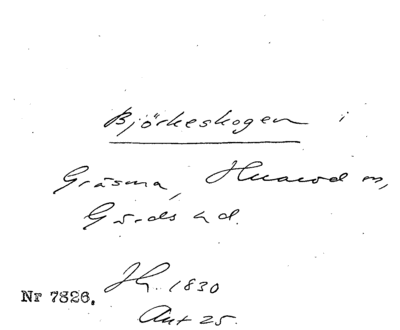 Björkeskogen i
Gräsma, Huarod sn,
Gärds hd.
Nr 7826. JG. 1830
Ant 25.